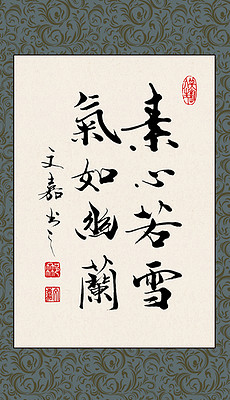 素心若雪
氣如幽蘭
文嘉书之